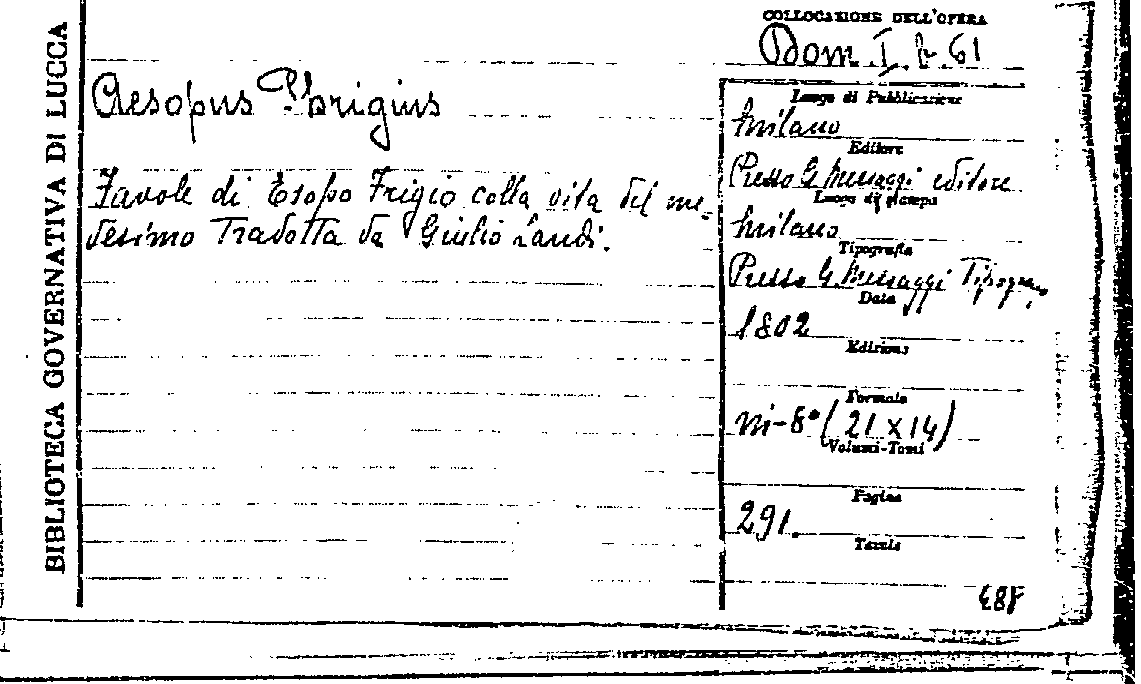 BIBLIOTECA GOVERNATIVA DI LUCCA
COLLOCAZIONE DELL'OPERA
Dom. I. b. 61
Aesopus Phrigius
Favole di Esopo Frigio colla vita del me-
desimo Tradotta da Giulio Landi.
Luogo di Pubblicazione
Milano
Editore
Presso G. Messaggi editore
Luogo di stampa
Milano
Tipografia
Presso G. Messaggi Tipogra.
Data
1802
Edizione
Formato
in-8° (21 x 14)
Volumi-Tomi
Pagine
291.
Tavole